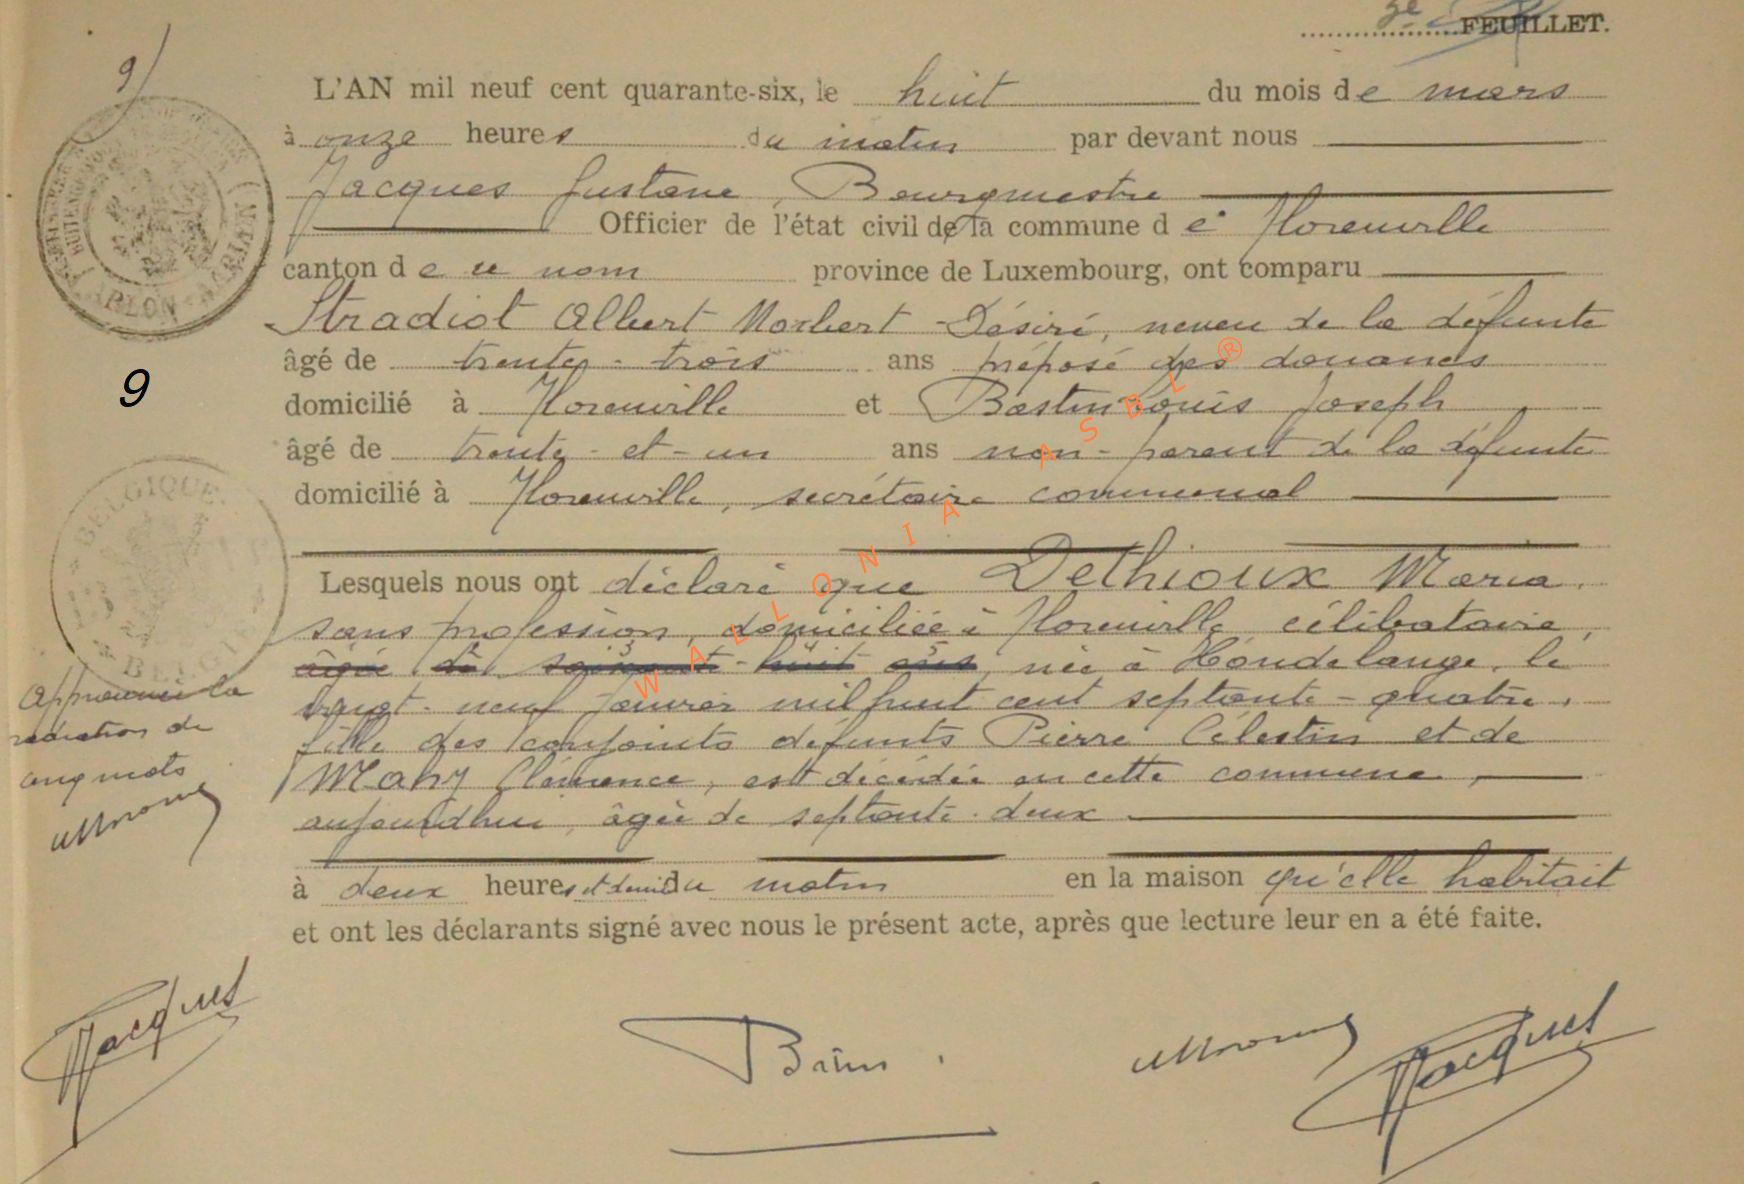 3e FEUILLET.
9/
L'AN mil neuf cent quarante-six, le huit du mois de mars
à onze heures du matin par devant nous
Jacques Gustave, Bourgmestre
Officier de l'état civil de la commune de Florenville
canton de ce nom province de Luxembourg, ont comparu
Stradiot Albert Norbert Désiré, neveu de la défunte
âgé de trente-trois ans préposé des douanes
9
domicilié à Florenville et Bastin Louis Joseph
âgé de trente-et-un ans non-parent de la défunte
domicilié à Florenville, secrétaire communal
Lesquels nous ont déclaré que Dethioux Maria,
sans profession, domiciliée à Florenville, célibataire,
âgée de soixante-huit ans, née à Hondelange, le
vingt-neuf janvier mil huit cent septante-quatre,
fille des conjoints défunts Pierre Célestin et de
Mahy Clémence, est décédée en cette commune,
aujourdhui, âgée de septante-deux
à deux heures et demi du matin en la maison qu'elle habitait
et ont les déclarants signé avec nous le présent acte, après que lecture leur en a été faite.
Approuvé la
radiation de
cinq mots
Jacques
Jacques
BELGIQUE
BELGIË
ARLON - AARLEN
WALLONIA ASBL ®